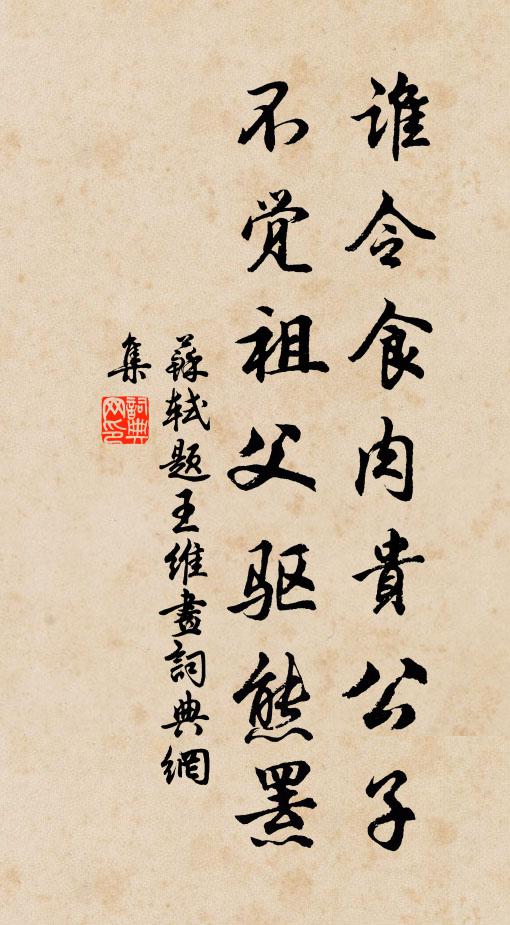 谁令食肉貴公子
不觉祖父驱熊罴
蘇軾题王维畫詞典網
集
詞典网印